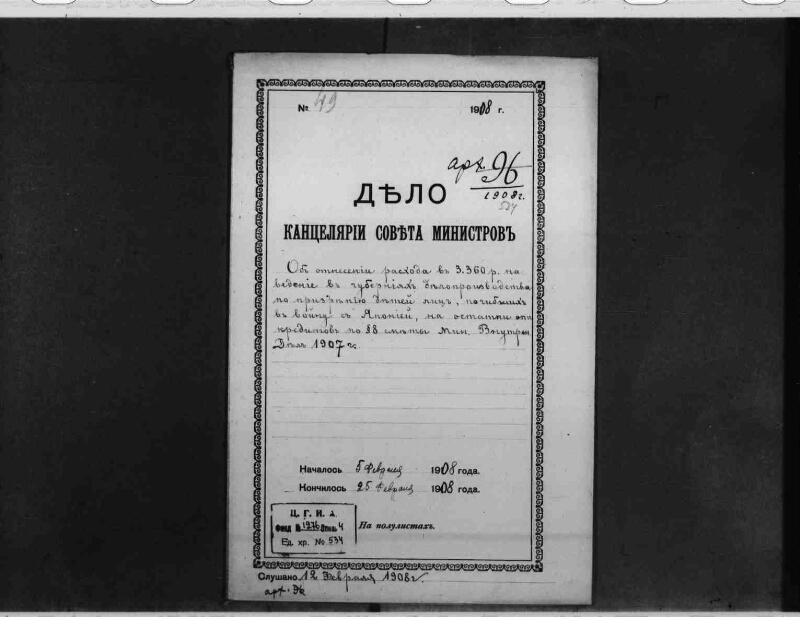 № 49 1908 г.
арх. 96
1908 г.
534
ДѢЛО
КАНЦЕЛЯРІИ СОВѢТА МИНИСТРОВЪ
Объ отнесеніи расхода въ 3.360 р. на
веденіе въ губерніяхъ дѣлопроизводства
по призрѣнію дѣтей лицъ, погибшихъ
въ войну съ Японіей, на остатки отъ
кредитовъ по § 8 смѣты Мин. Внутрен.
Дѣлъ 1907 г.
Началось 5 Февраля 1908 года.
Кончилось 25 Февраля 1908 года.
Ц. Г. И. А.
Фонд № 1276 Опись 4
Ед. хр. № 534
На полулистахъ.
Слушано 12 Февраля 1908 г.
арх. 96